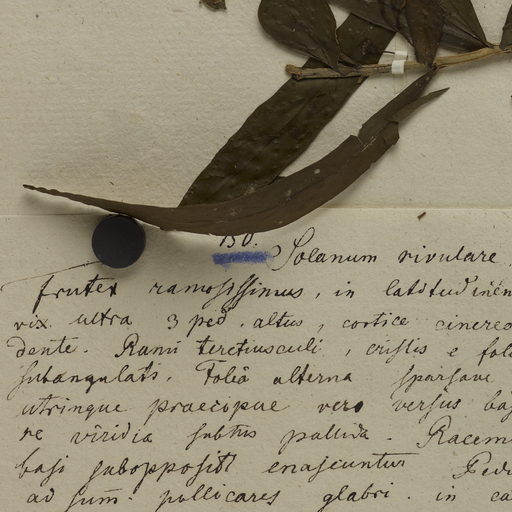 130.
Solanum rivulare
frutex ramosissimus, in latitudinem
vix ultra 3 ped. altus, cortice cineres
dente. Rami teretiusculi, cristis e fol
subangulats. Folia alterna sparsave
utrinque praecipue vero versus bas
ne viridia subtus pallida. Racem
basi suboppositi enascuntur Pedu
ad sum. pollicares glabri. in ca